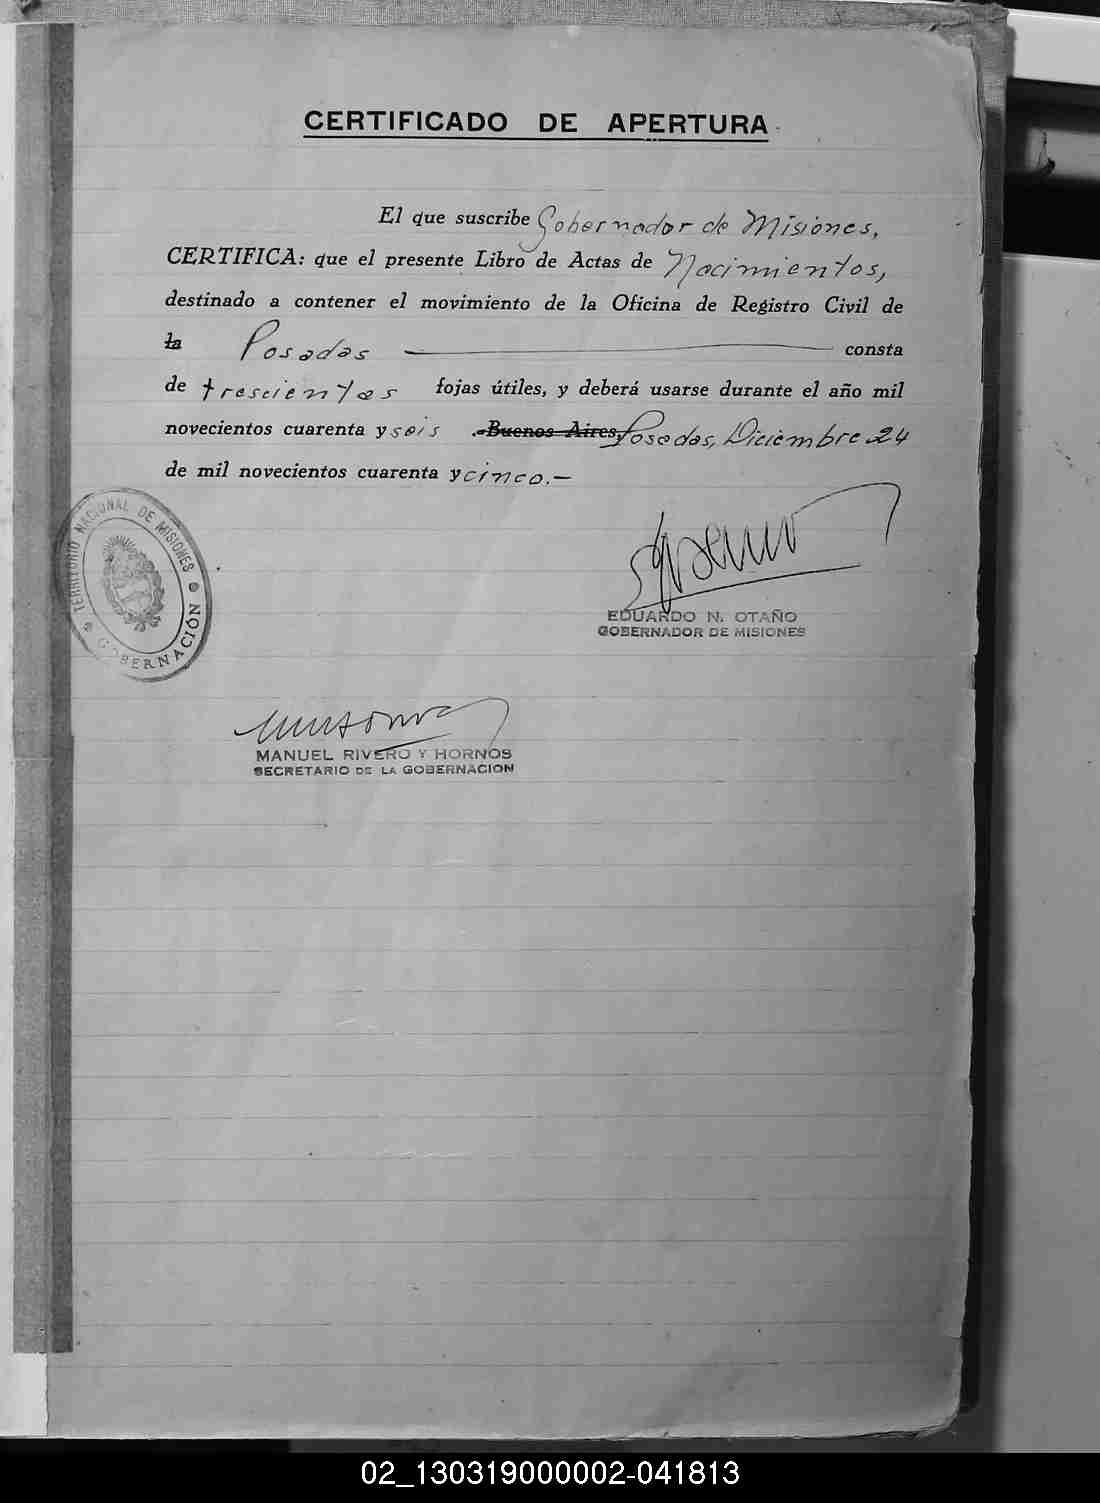 CERTIFICADO DE APERTURA
El que suscribe Gobernador de Misiones,
CERTIFICA: que el presente Libro de Actas de Nacimientos,
destinado a contener el movimiento de la Oficina de Registro Civil de
la Posadas consta
de trescientas fojas útiles, y deberá usarse durante el año mil
novecientos cuarenta y seis .-Buenos Aires, Posadas, Diciembre 24
de mil novecientos cuarenta y cinco.-
TERRITORIO NACIONAL DE MISIONES
GOBERNACIÓN
EDUARDO N. OTAÑO
GOBERNADOR DE MISIONES
MANUEL RIVERO Y HORNOS
SECRETARIO DE LA GOBERNACION
02_130319000002-041813